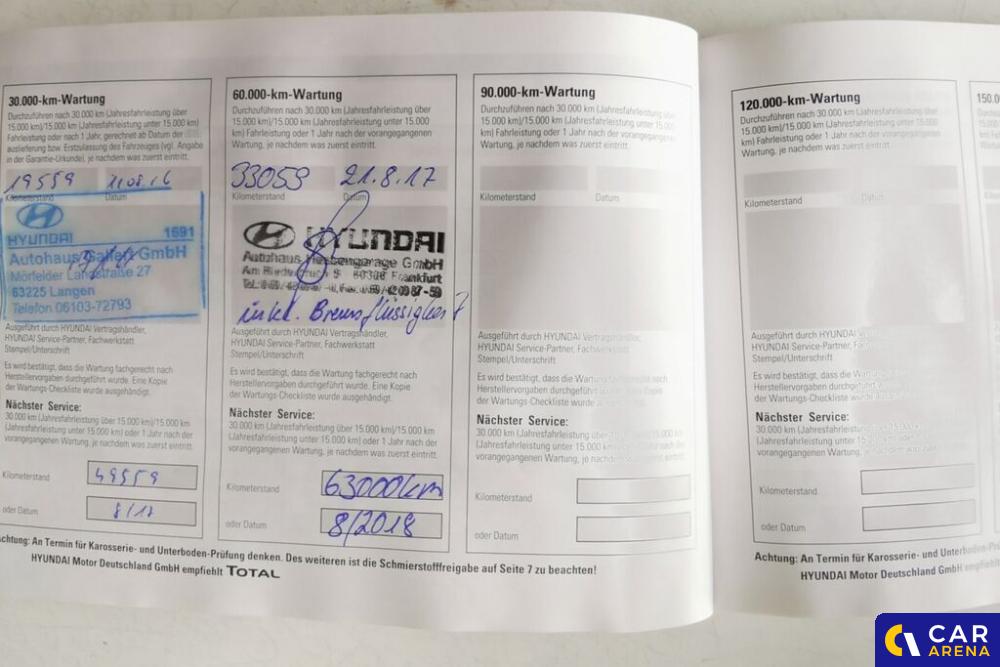 30.000-km-Wartung
Durchzuführen nach 30.000 km (Jahresfahrleistung über
15.000 km)/15.000 km (Jahresfahrleistung unter 15.000 km)
Fahrleistung oder nach 1 Jahr, gerechnet ab Datum der
auslieferung bzw. Erstzulassung des Fahrzeuges (vgl. Angabe
in der Garantie-Urkunde), je nachdem was zuerst eintritt.
19559
Kilometerstand Datum
HYUNDAI 1691
Autohaus GmbH
Mörfelder Landstraße 27
63225 Langen
Telefon 06103-72793
Ausgeführt durch HYUNDAI Vertragshändler,
HYUNDAI Service-Partner, Fachwerkstatt
Stempel/Unterschrift
Es wird bestätigt, dass die Wartung fachgerecht nach
Herstellervorgaben durchgeführt wurde. Eine Kopie
der Wartungs-Checkliste wurde ausgehändigt.
Nächster Service:
30.000 km (Jahresfahrleistung über 15.000 km)/15.000 km
(Jahresfahrleistung unter 15.000 km) oder 1 Jahr nach der
vorangegangenen Wartung, je nachdem was zuerst eintritt.
Kilometerstand 49559
oder Datum 8/17
60.000-km-Wartung
Durchzuführen nach 30.000 km (Jahresfahrleistung über
15.000 km)/15.000 km (Jahresfahrleistung unter 15.000
km) Fahrleistung oder 1 Jahr nach der vorangegangenen
Wartung, je nachdem was zuerst eintritt.
33059 21.8.17
Kilometerstand Datum
HYUNDAI
Autohaus Hessengarage GmbH
Frankfurt
inkl. Bremsflüssigkeit
Ausgeführt durch HYUNDAI Vertragshändler,
HYUNDAI Service-Partner, Fachwerkstatt
Stempel/Unterschrift
Es wird bestätigt, dass die Wartung fachgerecht nach
Herstellervorgaben durchgeführt wurde. Eine Kopie
der Wartungs-Checkliste wurde ausgehändigt.
Nächster Service:
30.000 km (Jahresfahrleistung über 15.000 km)/15.000 km
(Jahresfahrleistung unter 15.000 km) oder 1 Jahr nach der
vorangegangenen Wartung, je nachdem was zuerst eintritt.
Kilometerstand 63000km
oder Datum 8/2018
90.000-km-Wartung
Durchzuführen nach 30.000 km (Jahresfahrleistung über
15.000 km)/15.000 km (Jahresfahrleistung unter 15.000
km) Fahrleistung oder 1 Jahr nach der vorangegangenen
Wartung, je nachdem was zuerst eintritt.
Kilometerstand Datum
Ausgeführt durch HYUNDAI Vertragshändler,
HYUNDAI Service-Partner, Fachwerkstatt
Stempel/Unterschrift
Es wird bestätigt, dass die Wartung fachgerecht nach
Herstellervorgaben durchgeführt wurde. Eine Kopie
der Wartungs-Checkliste wurde ausgehändigt.
Nächster Service:
30.000 km (Jahresfahrleistung über 15.000 km)/15.000 km
(Jahresfahrleistung unter 15.000 km) oder 1 Jahr nach der
vorangegangenen Wartung, je nachdem was zuerst eintritt.
Kilometerstand
oder Datum
chtung: An Termin für Karosserie- und Unterboden-Prüfung denken. Des weiteren ist die Schmierstofffreigabe auf Seite 7 zu beachten!
HYUNDAI Motor Deutschland GmbH empfiehlt TOTAL
120.000-km-Wartung
Durchzuführen nach 30.000 km (Jahresfahrleistung über
15.000 km)/15.000 km (Jahresfahrleistung unter 15.000
km) Fahrleistung oder 1 Jahr nach der vorangegangenen
Wartung, je nachdem was zuerst eintritt.
Kilometerstand Datum
Ausgeführt durch HYUNDAI Vertragshändler,
HYUNDAI Service-Partner, Fachwerkstatt
Stempel/Unterschrift
Es wird bestätigt, dass die Wartung fachgerecht nach
Herstellervorgaben durchgeführt wurde. Eine Kopie
der Wartungs-Checkliste wurde ausgehändigt.
Nächster Service:
30.000 km (Jahresfahrleistung über 15.000 km)/15.000 km
(Jahresfahrleistung unter 15.000 km) oder 1 Jahr nach der
vorangegangenen Wartung, je nachdem was zuerst eintritt.
Kilometerstand
oder Datum
Achtung: An Termin für Karosserie- und Unterboden-Prü
HYUNDAI Motor Deutschland GmbH empfiehlt
150.0
CAR
ARENA